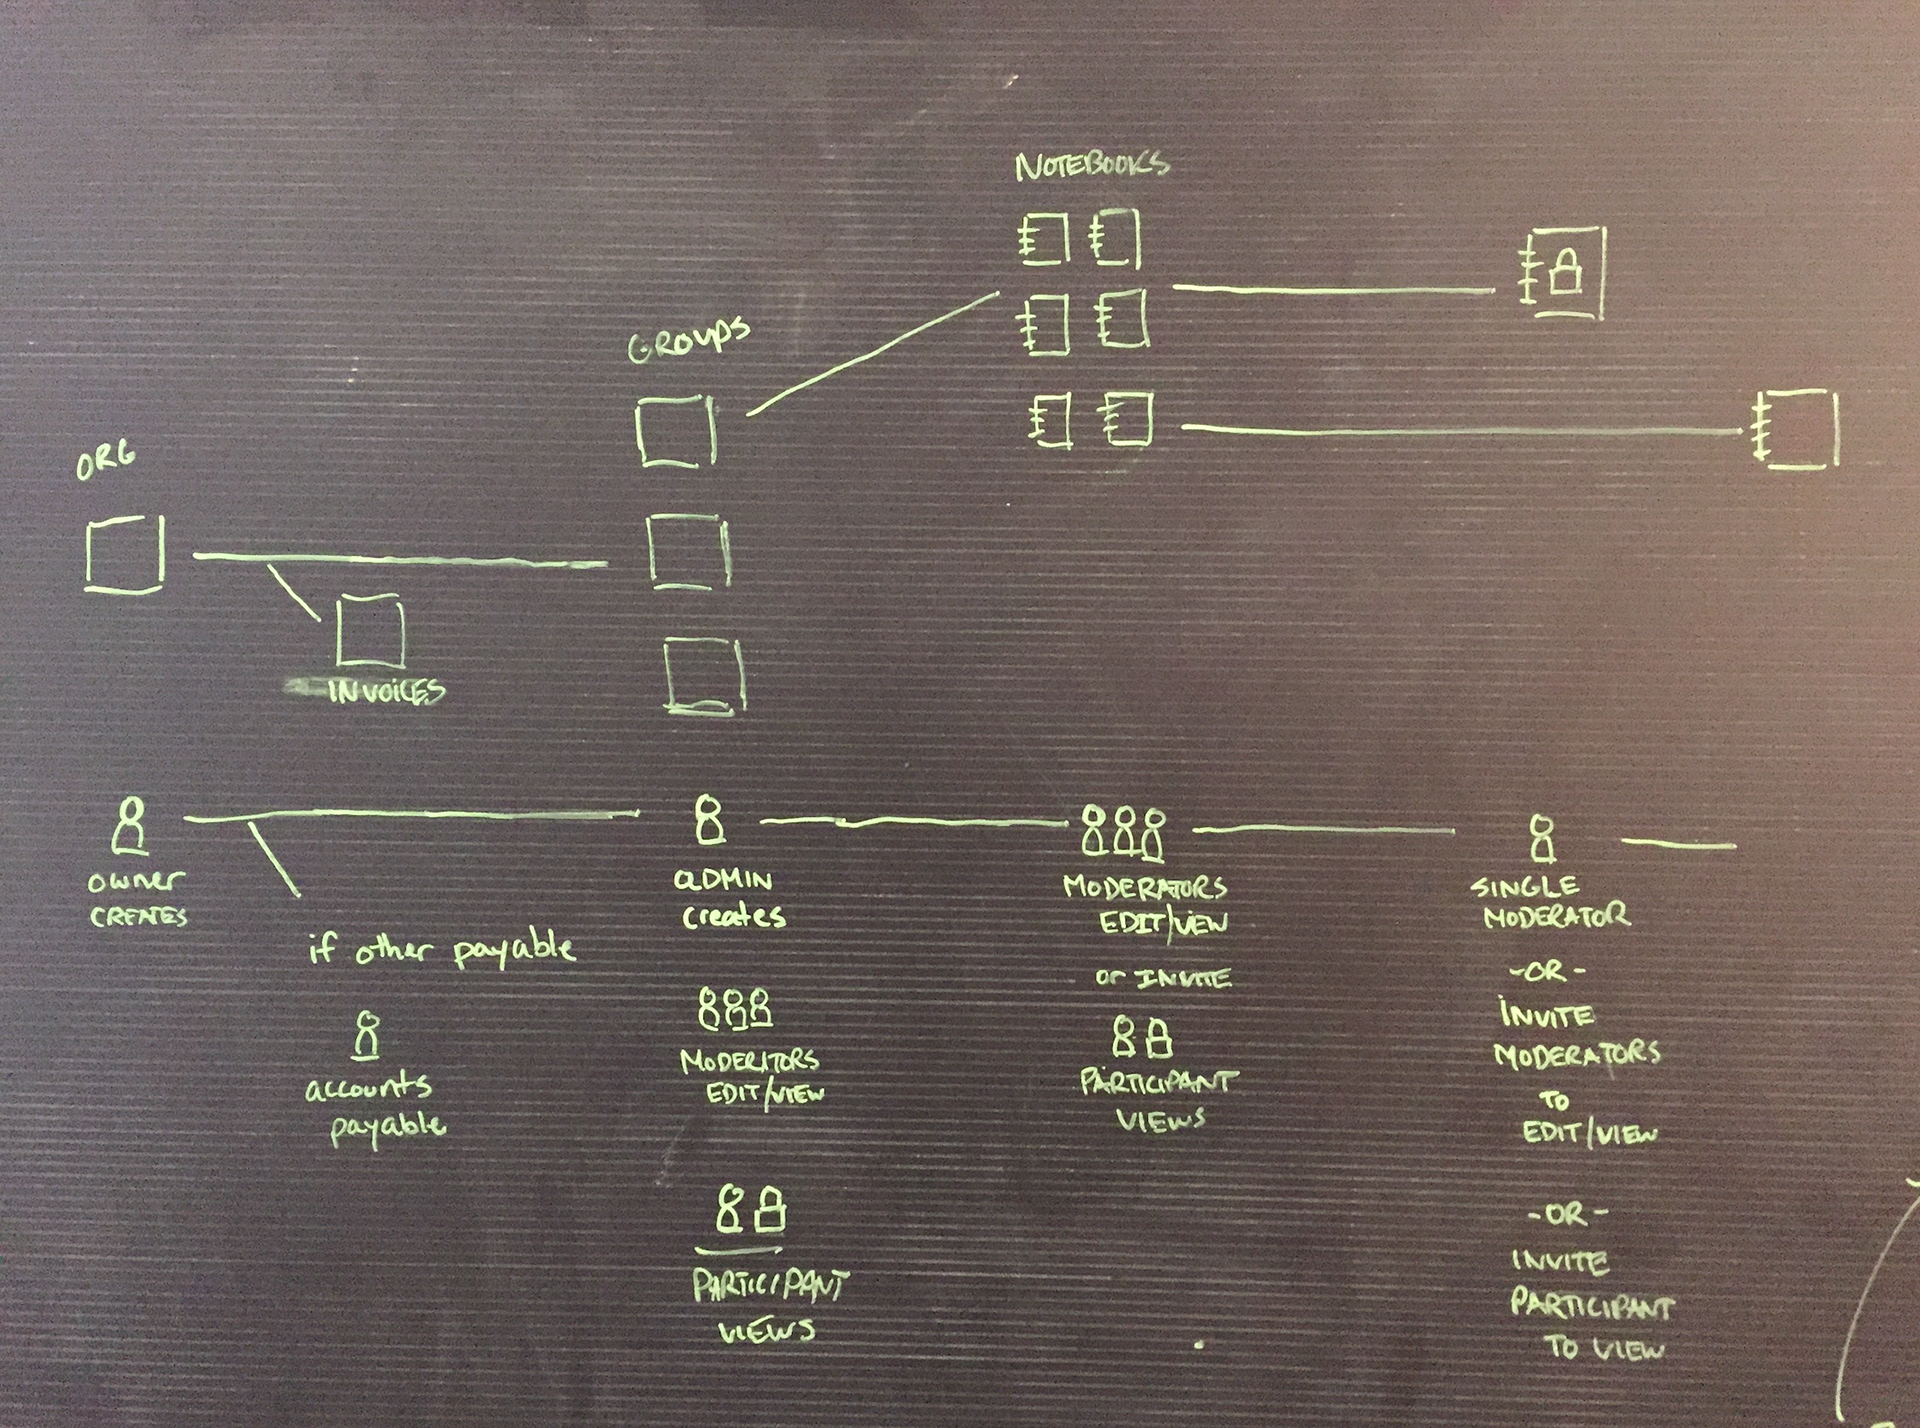 NOTEBOOKS
GROUPS
ORG
INVOICES
owner
CREATES
if other payable
accounts
payable
aDMIN
creates
MODERITORS
EDIT/VIEW
PARTICIPANT
VIEWS
MODERATORS
EDIT/VIEW
or INVITE
PARTICIPANT
VIEWS
SINGLE
MODERATOR
-OR-
INVITE
MODERATORS
TO
EDIT/VIEW
-OR-
INVITE
PARTICIPANT
TO VIEW